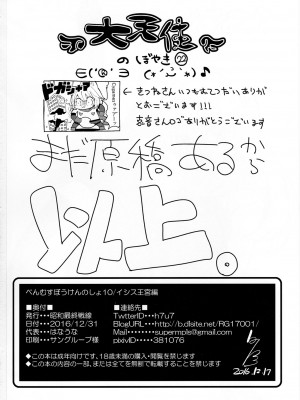 大天使
のぼやき㉒
ドガシャア
← きつねさんいつもおてつだいありが
とおございます!!!
玄音さんロゴありがとうございます
まだ原稿あるから
以上。
べんむすぼうけんのしょ10/イシス王宮編
■奥付■
発行・・・昭和最終戦線
日付・・・2016/12/31
代表・・・はなうな
印刷・・・サングループ様
■連絡先■
TwitterID・・・h7u7
BlogURL・・・http://b.dlsite.net/RG17001/
Mail・・・・・・supermple@gmail.com
pixivID・・・・・381076
◆この本は成人向けです。18歳未満の購入・閲覧を禁じます
◆この本の内容の一部、または全てを無断で転載することを禁じます
2016.12.17